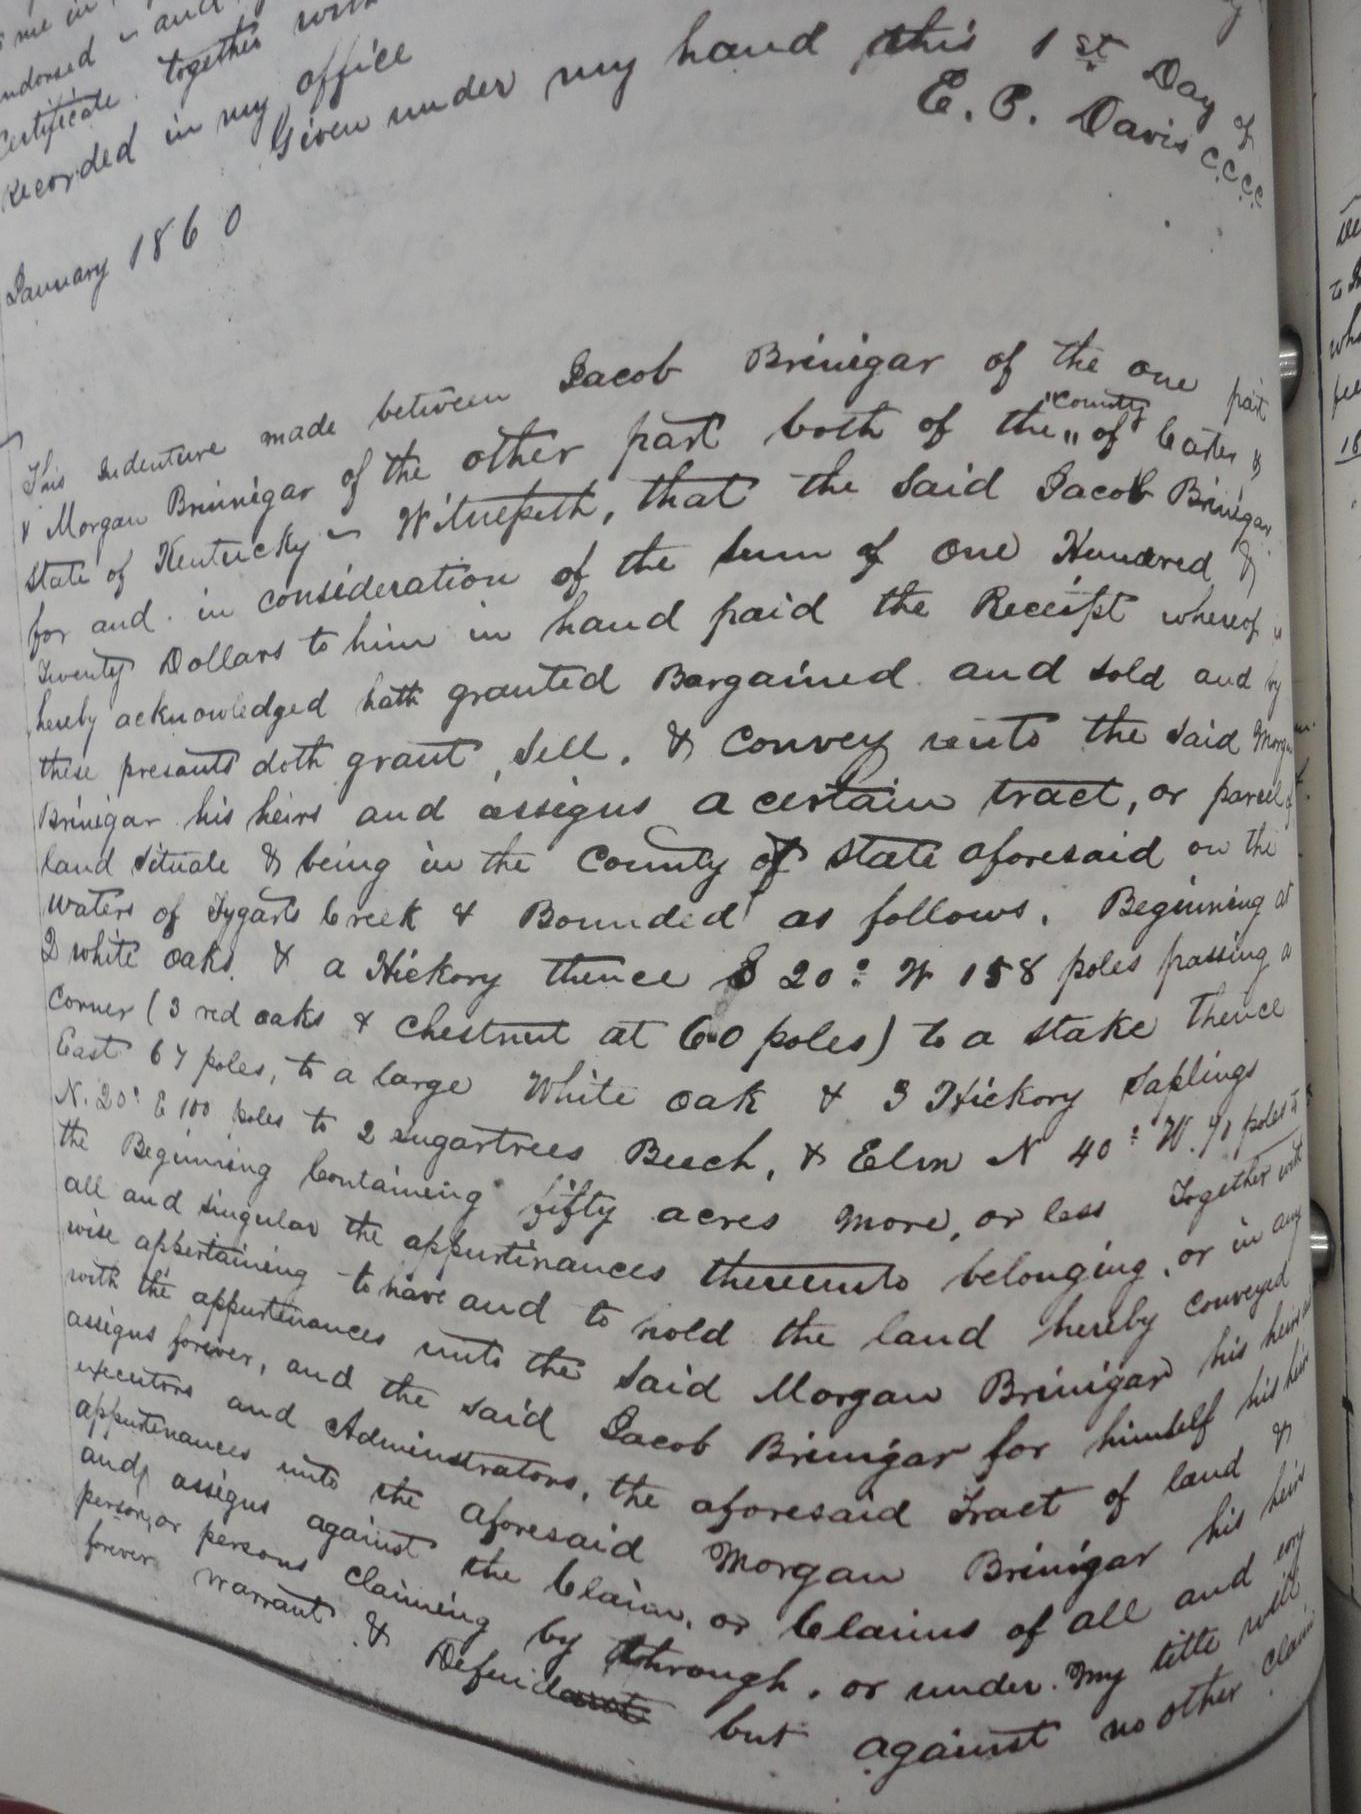 me in
endorsed ~ and
Certificate together with
Recorded in my office
Given under my hand this 1st Day of
January 1860
E. P. Davis C.C.C.C.
This Indenture made between Jacob Brinigar of the one part
& Morgan Brinnigar of the other part both of the "County" of Carter &
State of Kentucky ~ Witnesseth, that the said Jacob Brinigar
for and in consideration of the sum of one Hundred &
Twenty Dollars to him in hand paid the Receipt whereof is
hereby acknowledged hath granted Bargained and sold and by
these presants doth grant, sell, & convey unto the said Morgan
Brinigar his heirs and assigns a certain tract, or parcel of
land situate & being in the County of State aforesaid on the
waters of Tygarts Creek & Bounded as follows. Beginning at
2 white oaks & a Hickory thence S 20° W 158 poles passing a
corner (3 red oaks & chestnut at 60 poles) to a stake Thence
East 67 poles, to a large White oak & 3 Hickory Saplings
N. 20° E 100 poles to 2 sugartrees Beech, & Elm N 40° W. poles to
the Beginning Containing fifty acres more, or less Together with
all and singular the appurtinances thereunto belonging, or in any
wise appertaining to have and to hold the land hereby conveyed
with the appurtenances unto the said Morgan Brinigar his heirs
assigns forever, and the said Jacob Brinigar for himself his heirs
executors and Adminstrators, the aforesaid Tract of land &
appurtenances unto the aforesaid Morgan Brinigar his heirs
and assigns against the Claim, or Claims of all and evry
person, or persons claiming by through, or under. My title will
forever warrant & Defend but against no other claim